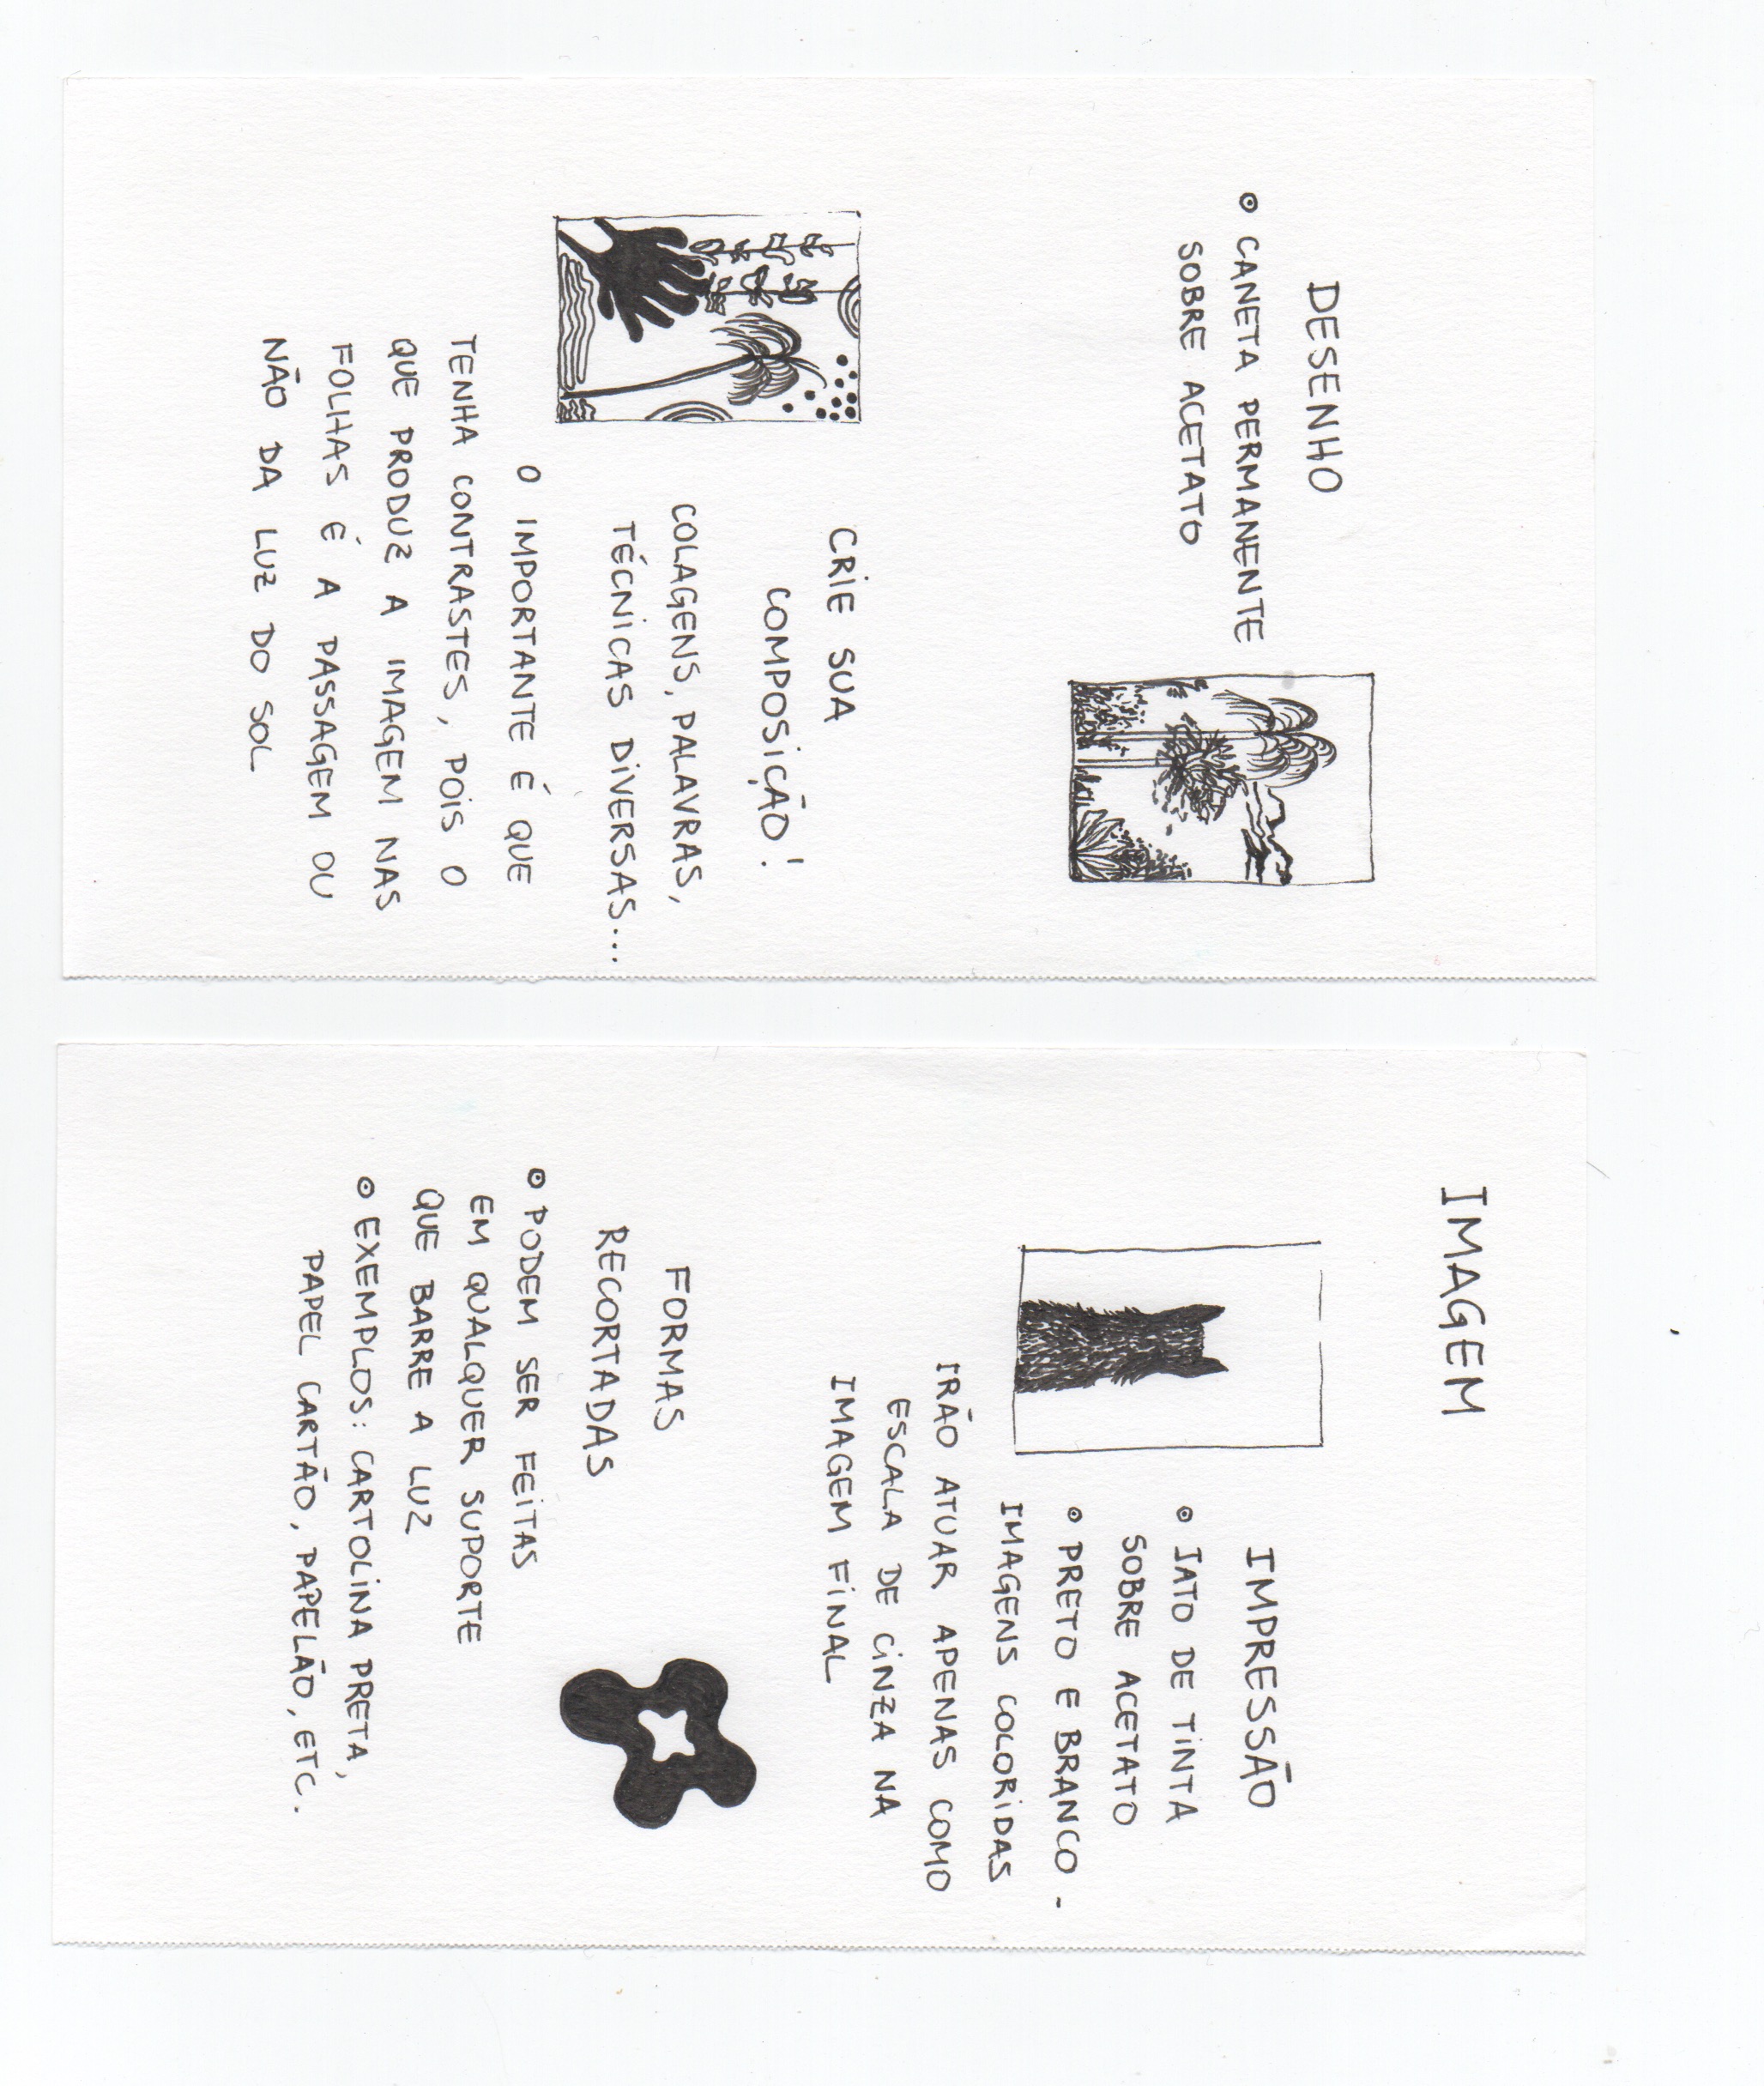 DESENHO
⊙ CANETA PERMANENTE
SOBRE ACETATO
CRIE SUA
COMPOSIÇÃO!
COLAGENS, PALAVRAS,
TÉCNICAS DIVERSAS...
O IMPORTANTE É QUE
TENHA CONTRASTES, POIS O
QUE PRODUZ A IMAGEM NAS
FOLHAS É A PASSAGEM OU
NÃO DA LUZ DO SOL
IMAGEM
IMPRESSÃO
⊙ JATO DE TINTA
SOBRE ACETATO
⊙ PRETO E BRANCO -
IMAGENS COLORIDAS
IRÃO ATUAR APENAS COMO
ESCALA DE CINZA NA
IMAGEM FINAL
FORMAS
RECORTADAS
⊙ PODEM SER FEITAS
EM QUALQUER SUPORTE
QUE BARRE A LUZ
⊙ EXEMPLOS: CARTOLINA PRETA,
PAPEL CARTÃO, PAPELÃO, ETC.